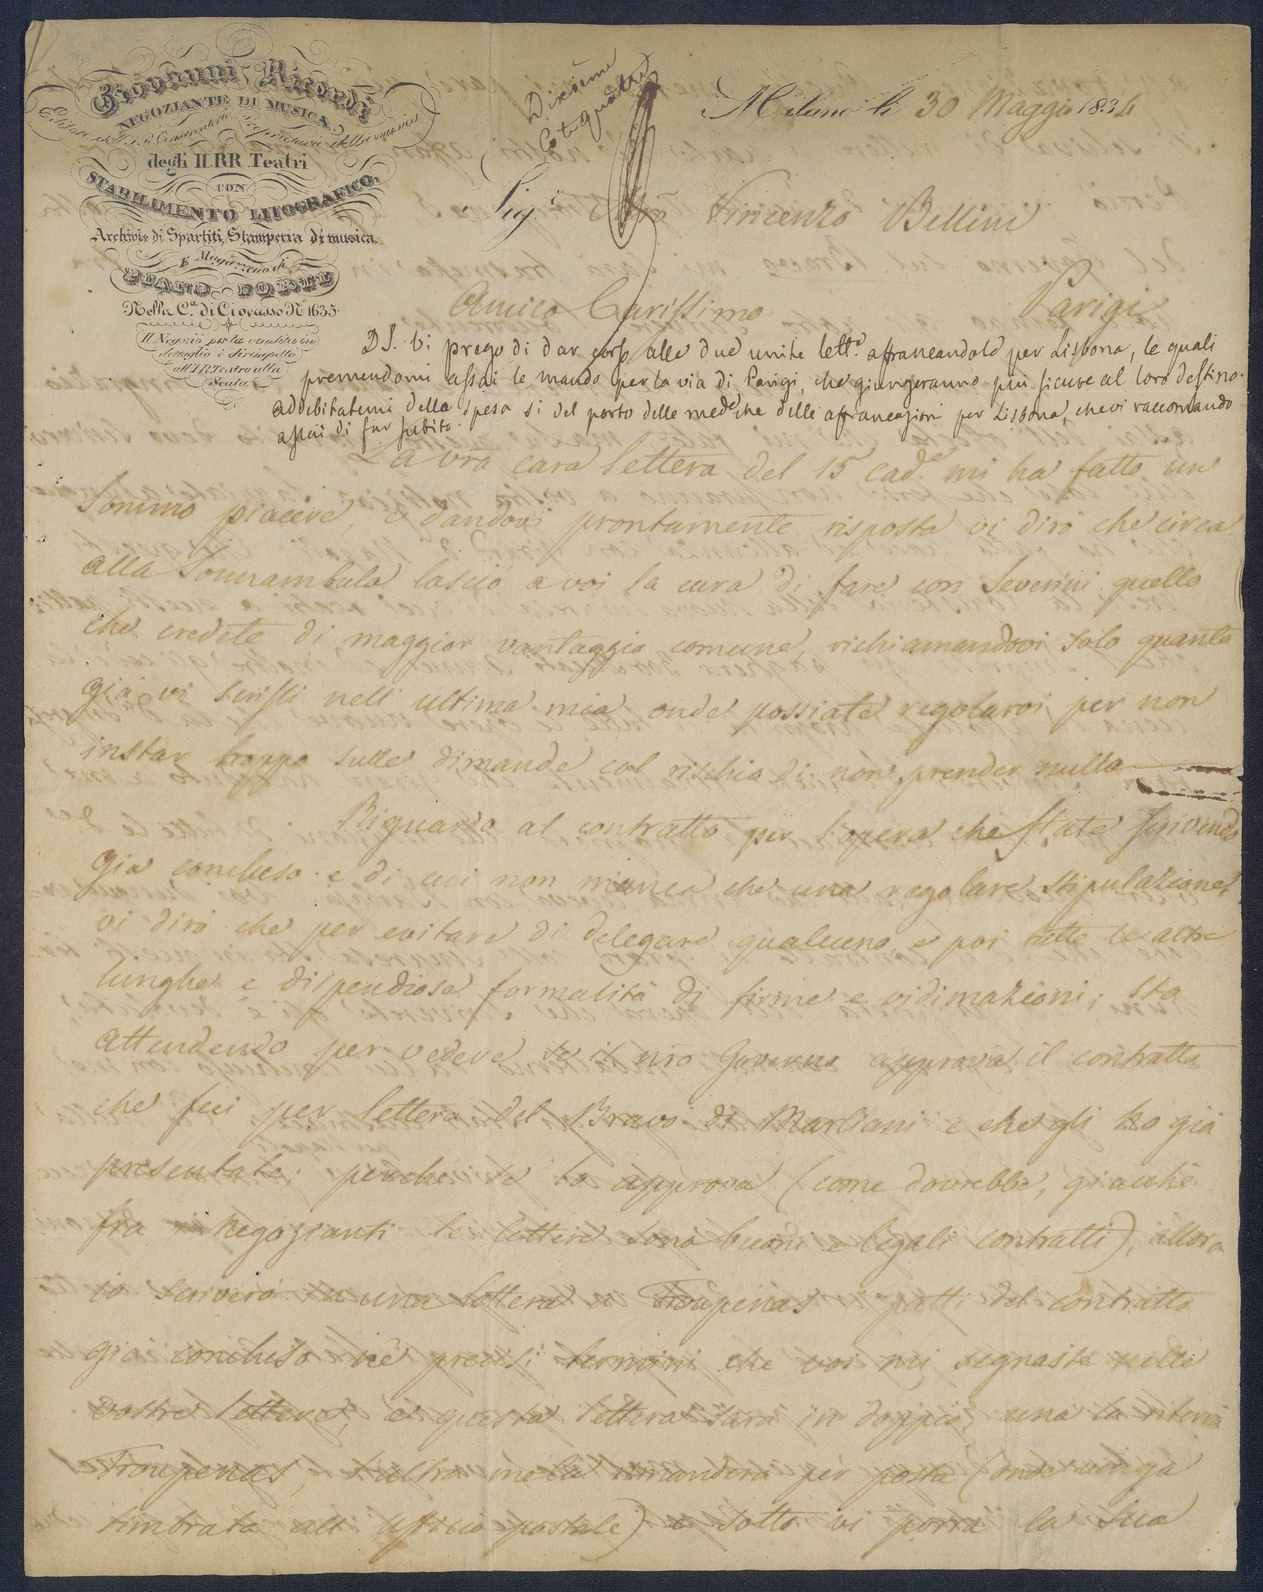 Giovanni Ricordi
NEGOZIANTE DI MUSICA
Editore dell'I. R. Conservatorio e Proprietario della musica
degli II. RR. Teatri
CON
STABILIMENTO LITOGRAFICO,
Archivio di Spartiti, Stamperia di musica
E Magazzeno di
PIANO-FORTE
Nella C.a di Ciovasso N.o 1635
Il Negozio per la vendita in
dettaglio è dirimpetto
all'I. R. Teatro alla
Scala
Dixième
et quatre
Milano li 30 Maggio 1834
Sig.r Vincenzo Bellini
Parigi
Amico Carissimo
P.S. Vi prego di dar corso alle due unite lett.e affrancandole per Lisbona, le quali
premendomi assai le mando per la via di Parigi, che giungeranno più sicure al loro destino.
addebitatemi della spesa sì del porto delle med.e che delle affrancazioni per Lisbona, che vi raccomando
assai di far subito.
La vra cara lettera del 15 cad.e mi ha fatto un
sommo piacere, e dandovi prontamente risposta vi dirò che circa
alla Sonnambula lascio a voi la cura di fare con Severini quello
che credete di maggior vantaggio comune, richiamandovi solo quanto
già vi scrissi nell'ultima mia onde possiate regolarvi per non
instar troppo sulle dimande col rischio di non prender nulla
Riguardo al contratto per l'opera che state scrivendo
già concluso e di cui non manca che una regolare stipulazione,
vi dirò che per evitare di delegare qualcuno, e poi tutte le altre
lunghe e dispendiose formalità di firme e vidimazioni, sto
attendendo per vedere se il nro Governo approva il contratto
che feci per lettera del Bravo di Marliani e che gli ho già
presentato; perchè se lo approva (come dovrebbe, giacchè
fra Negozianti le lettere sono buoni e legali contratti), allora
io scriverò in una lettera a Troupenas i patti del contratto
già concluso ne' precisi termini che voi mi segnaste nelle
vostre lettere, e questa lettera sarà in doppio, una la riterrà
Troupenas, l'altra me la rimanderà per posta (onde venga
timbrata all'Ufficio postale) e sotto vi porrà la sua